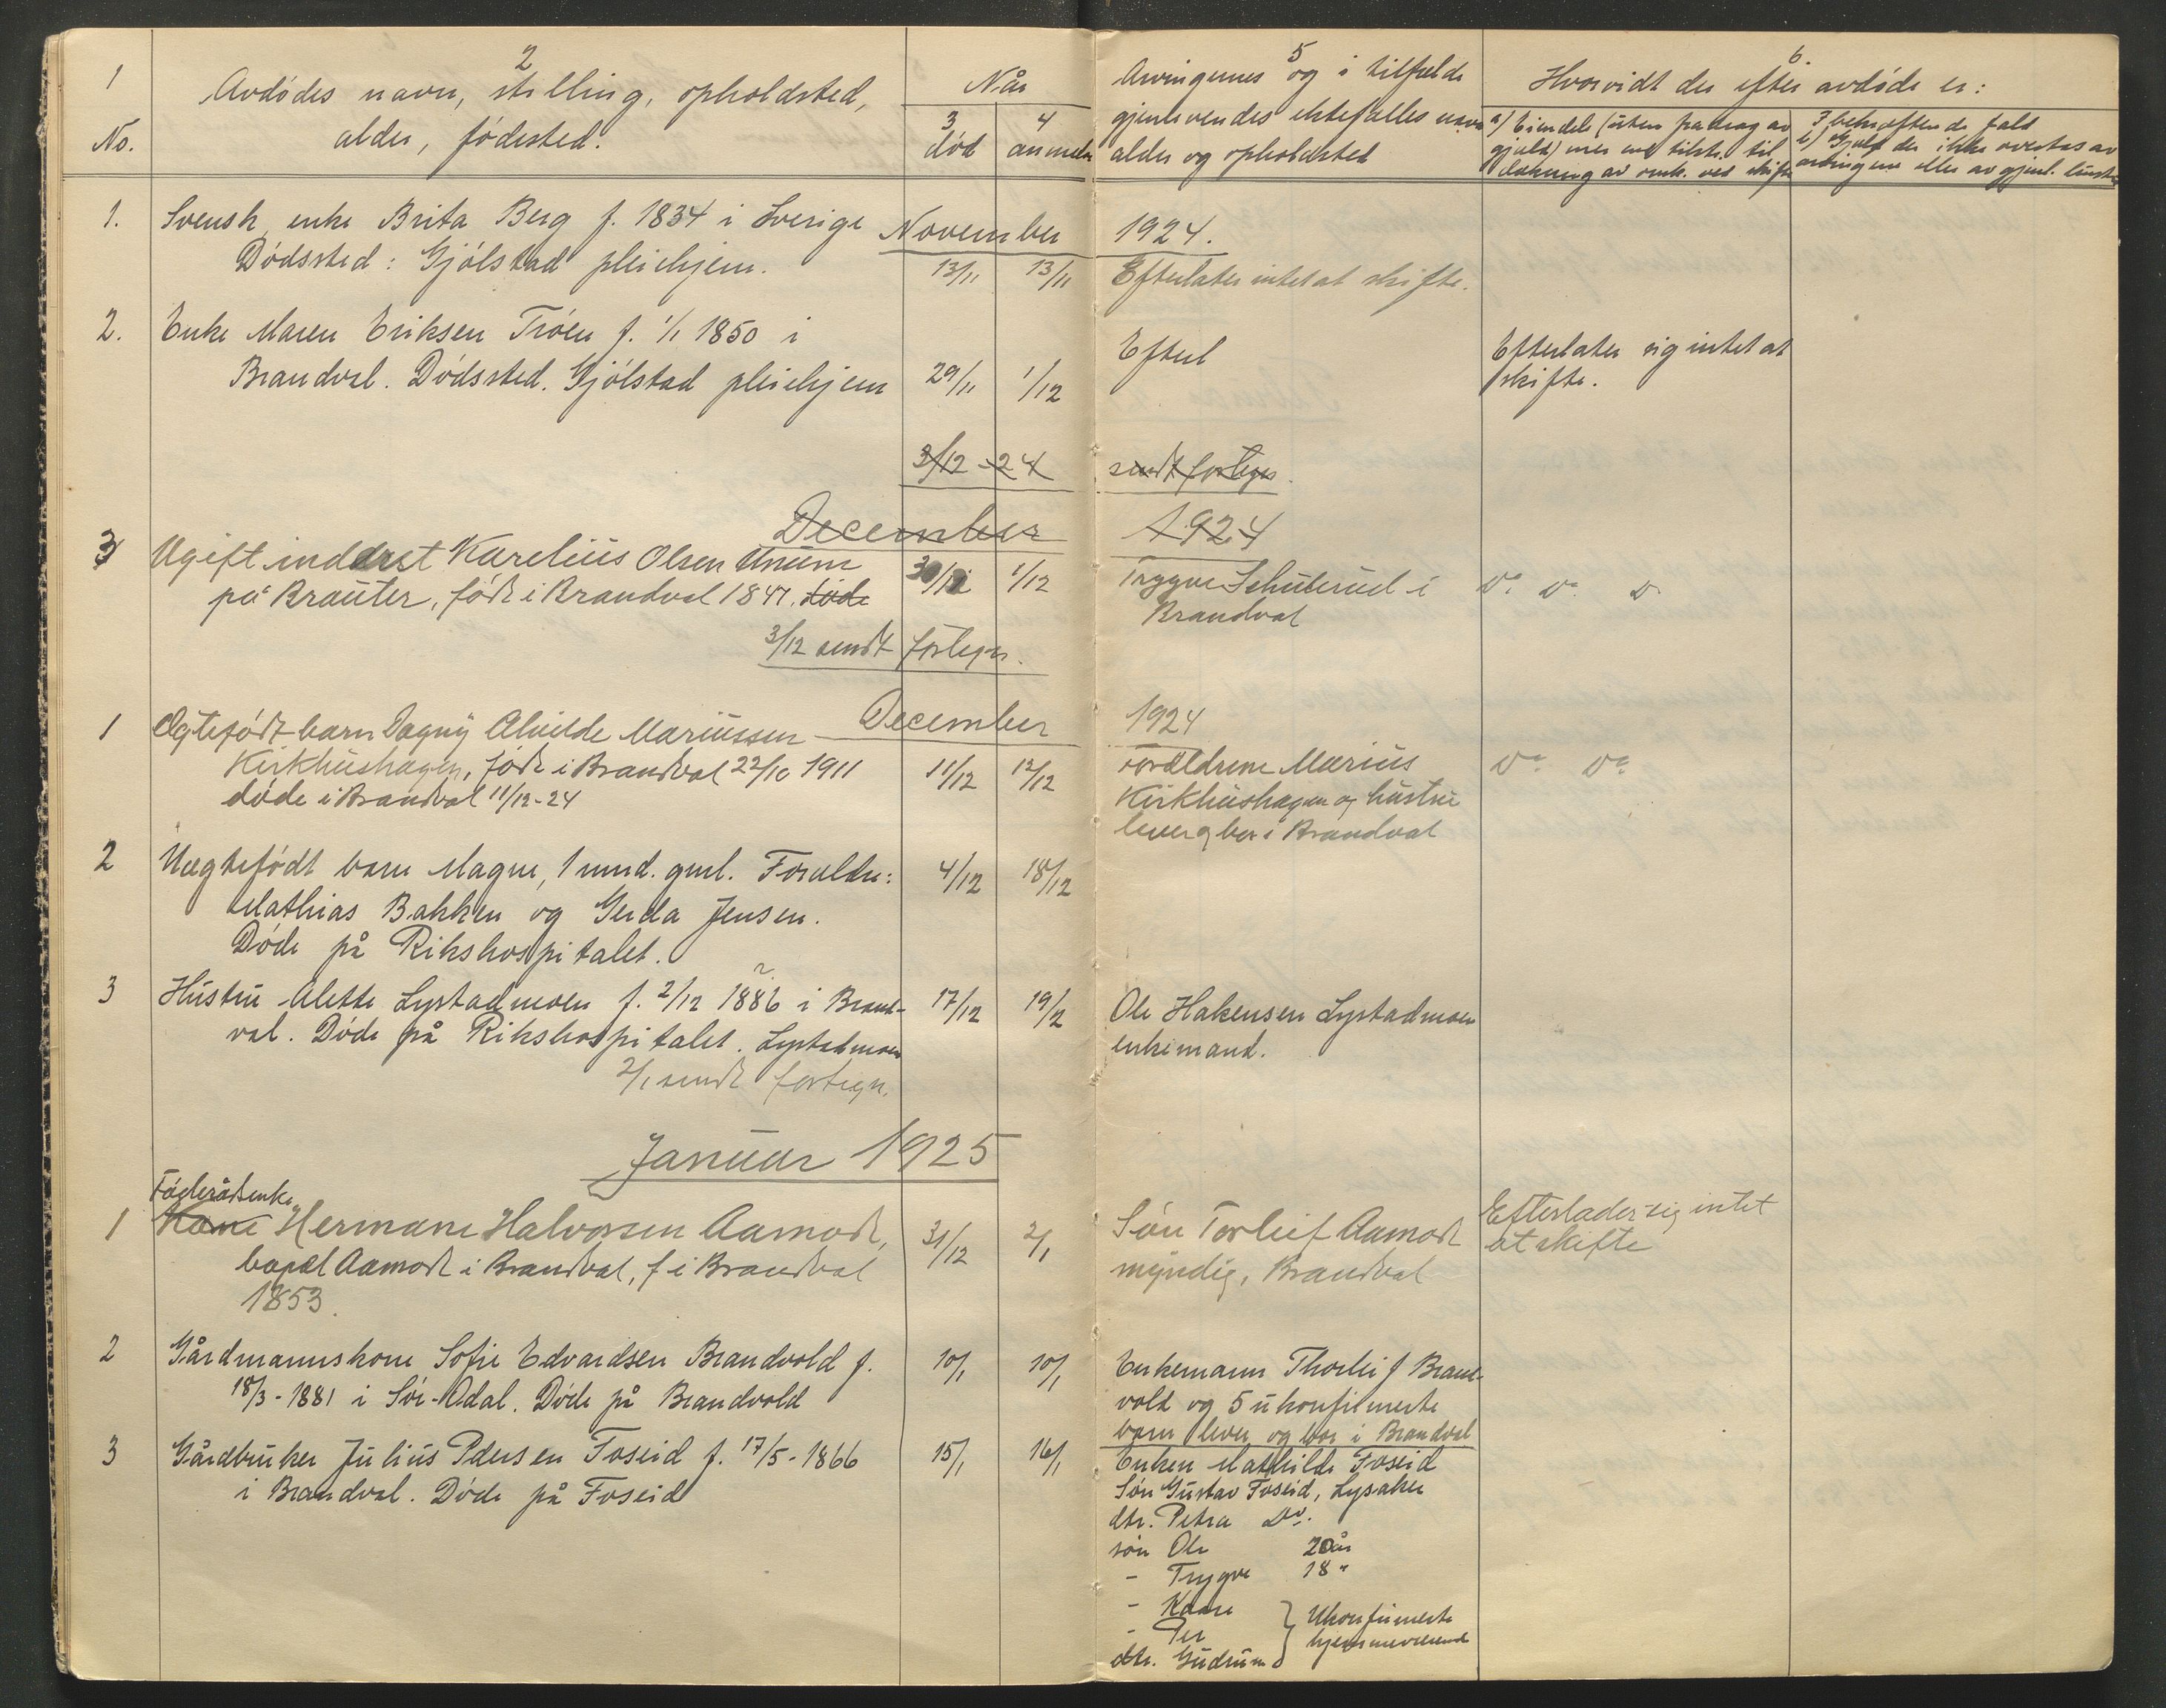 1
No.
2
Avdødes navn, stilling, opholdsted,
alder, fødested.
Når
3
død
4
anmeldt
5
Arvingernes og i tilfælde
gjenlevendes ektefælles navn
alder og opholdsted
6.
Hvorvidt der efter avdøde er:
a) Eiendele (uten fradrag av
gjeld) mer end tilstr. til
dækning av omk. ved skifte
I bekræftende fald
b) Gjeld der ikke overtas av
arvingene eller av gjenl.
November 1924.
1. Svensk enke Brita Berg f. 1834 i Sverige
Dødssted: Gjölstad pleiehjem. 13/11 13/11 Efterlater intet at skifte.
2. Enke Maren Eriksen Tröen f. 1/1 1850 i
Brandval. Dødssted. Gjölstad pleiehjem 29/11 1/12 Efterl Efterlater sig intet at
skifte.
3/12-24 sendt fortegn.
December 1924
3 Ugift inderst Karelius Olsen
på Brauter, född i Brandval 1847. döde 30/11 1/12 Trygve Schulerud i
Brandval Do. Do. Do.
3/12 sendt fortegn.
December 1924
1 Ægtefødt barn Dagny Alvilde Mariussen
Kirkhushagen, född i Brandval 22/10 1911 11/12 12/12
döde i Brandval 11/12-24
Forældrene Marius
Kirkhushagen og hustru
lever og bor i Brandval
Do Do
2 Uegtefødt barn Magne, 1 mnd. gml. Foreldre: 4/12 18/12
Mathias Bakken og Gerda Jensen.
Døde på Rikshospitalet.
3 Hustru Alette Lystadmoen f. 2/12 1886 i Brand- 17/12 19/2 Ole Hakensen Lystadmoen
val. Døde på Rikshospitalet. Lystadmoen enkemand.
2/1 sendt fortegn.
Januar 1925
Föderådsenke
1 Kone Hermane Halvorsen Aamodt, 31/12 2/1 Sön Torleif Aamodt Efterlader sig intet
bopæl Aamodt i Brandval, f i Brandval myndig, Brandval at skifte
1853.
2 Gårdmannskone Sofie Edvardsen Brandvold f. 10/1 10/1 Enkemann Thorleif Brand-
18/3-1881 i Sör-Odal. Døde på Brandvold vold og 5 ukonfirmerte
barn lever og bor i Brandval
3 Gårdbruker Julius Pedersen Foseid f. 17/5-1866 15/1 16/1 Enken Mathilde Foseid
i Brandval. Døde på Foseid Søn Gustav Foseid, Lysaker
dtr. Petra Do.
søn Ole 20 år
- Trygve 18 "
- Kaare
- Per
dtr. Gudrun
Ukonfirmerte
hjemmeværende